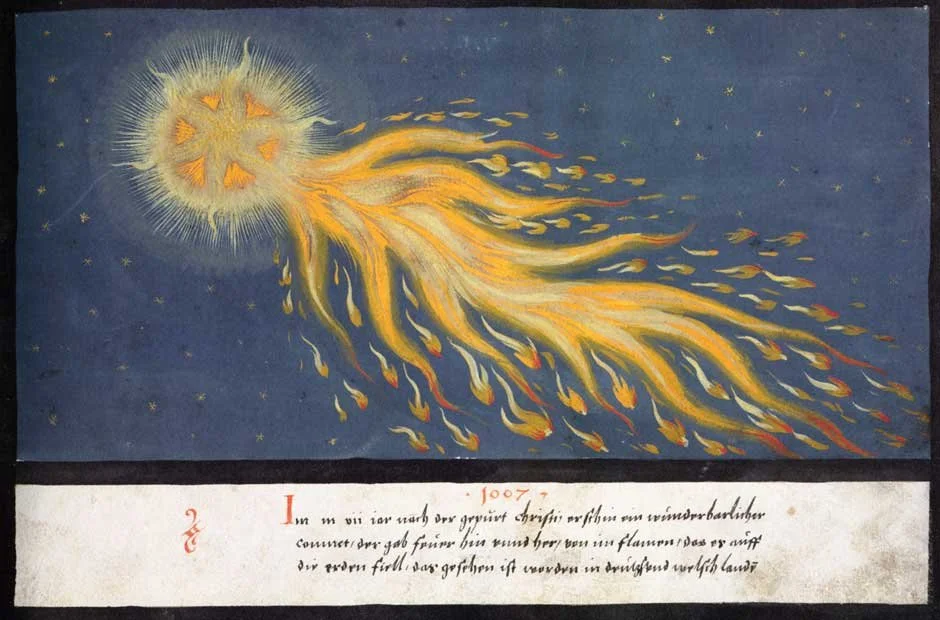 · 1007 ·
Im m vii iar nach der gepurt Christi erschin ein wunderbarlicher
commet / der gab feuer hin vnnd her / von im flamen / das es auff
die erden fiell / das gesehen ist worden in deutsch vnd welsch landē